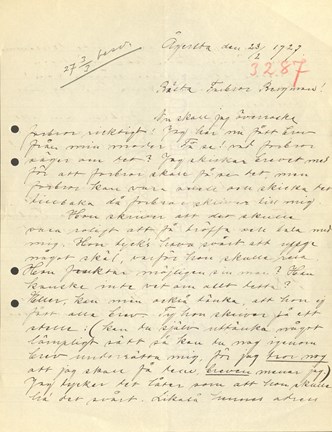 27 3/3 besv.
Ågersta den 23/2 1927
3287
Bästa Farbror Bergman!
Nu skall jag överraska
farbror, riktigt! Jag har nu fått brev
från min moder. Va se! vad farbror
säger om det? Jag skickar brevet med
för att farbror skall få se det, men
farbror kan vara snäll och skicka det
tillbaka då farbror skriver till mig.
Hon skriver att det skulle
vara roligt att få träffa och tala med
mig. Hon tycks hava svårt att uppge
något skäl, varför hon skulle resa
Hon fruktar möjligen sin man? Han
kanske inte vet om allt detta?
Eller kan man också tänka, att hon ej
fått alla brev. Ty hon skriver på ett
ställe: (kan du själv uttänka något
lämpligt sätt så kan du nog igenom
brev underrätta mig, för jag tror nog
att jag skall få dem, breven menar jag)
Jag tycker det låter som att hon skulle
ha det svårt. Likaså hennes adress